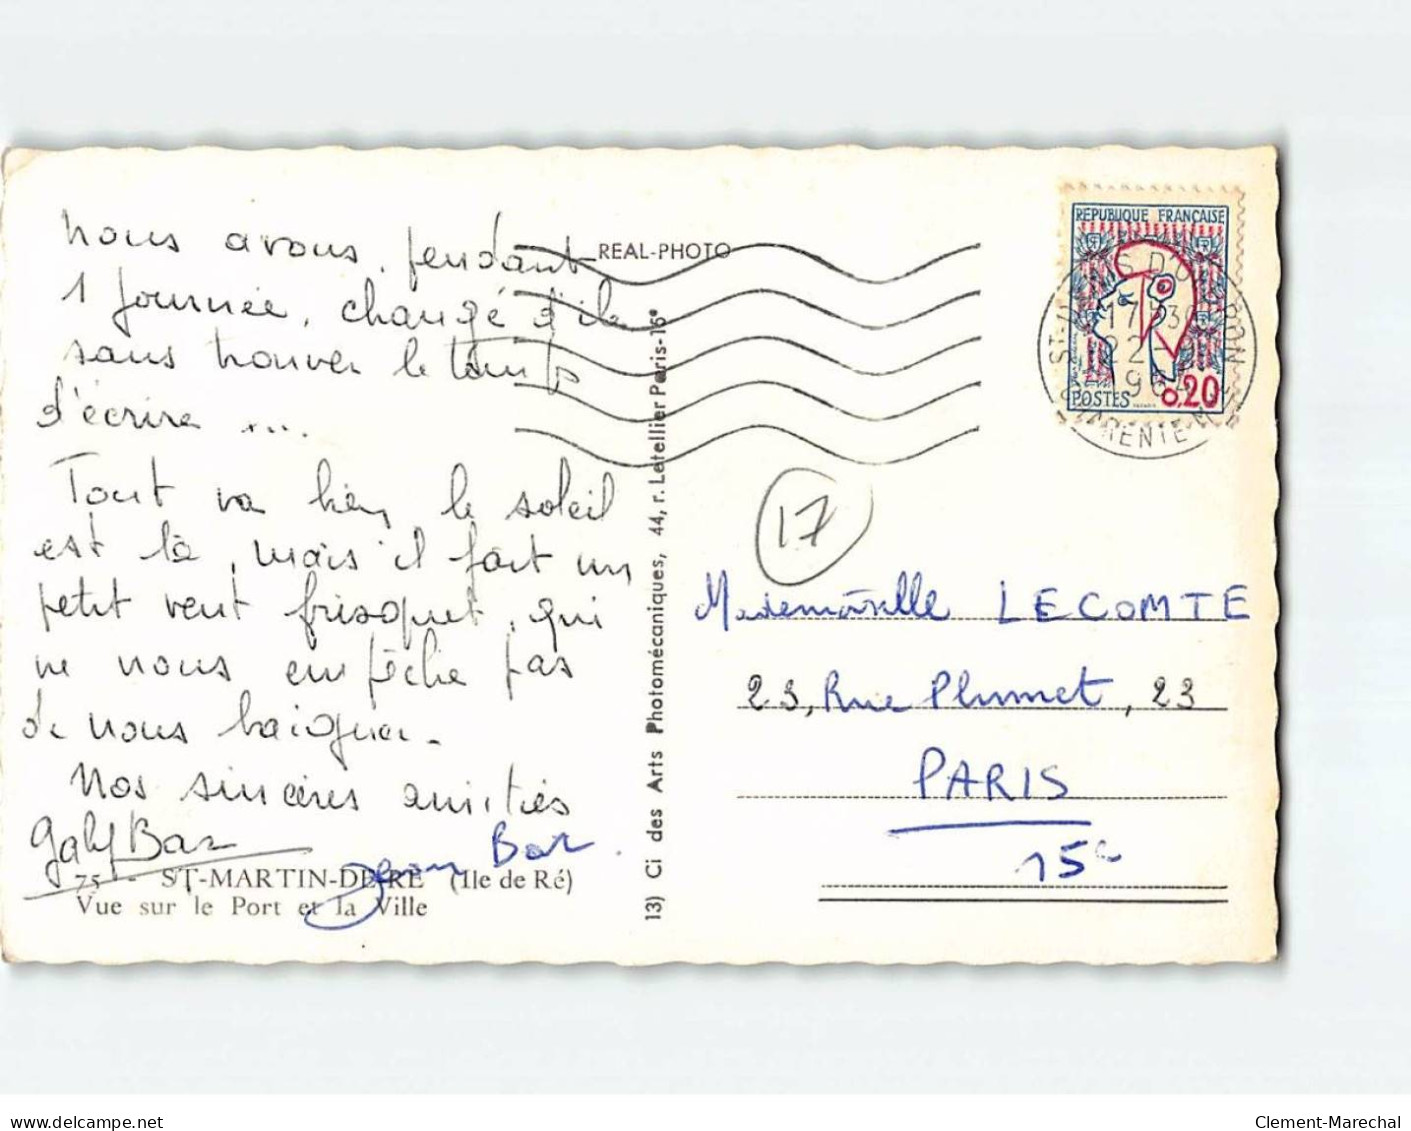 Nous avons, pendant
1 journée, changé d'ile
sans trouver le temps
d'écrire ...
Tout va bien, le soleil
est là, mais il fait un
petit vent frisquet, qui
ne nous empêche pas
de nous baigner.
Nos sincères amitiés
Gaby Bar
Jean Bar
75 - ST-MARTIN-DE-RE (Ile de Ré)
Vue sur le Port et la Ville
REAL-PHOTO
13) Ci des Arts Photomécaniques, 44, r. Letellier Paris-15e
REPUBLIQUE FRANÇAISE
POSTES 0,20
17
Mademoiselle LECOMTE
23, Rue Plumet, 23
PARIS
15e
www.delcampe.net
Clement-Marechal